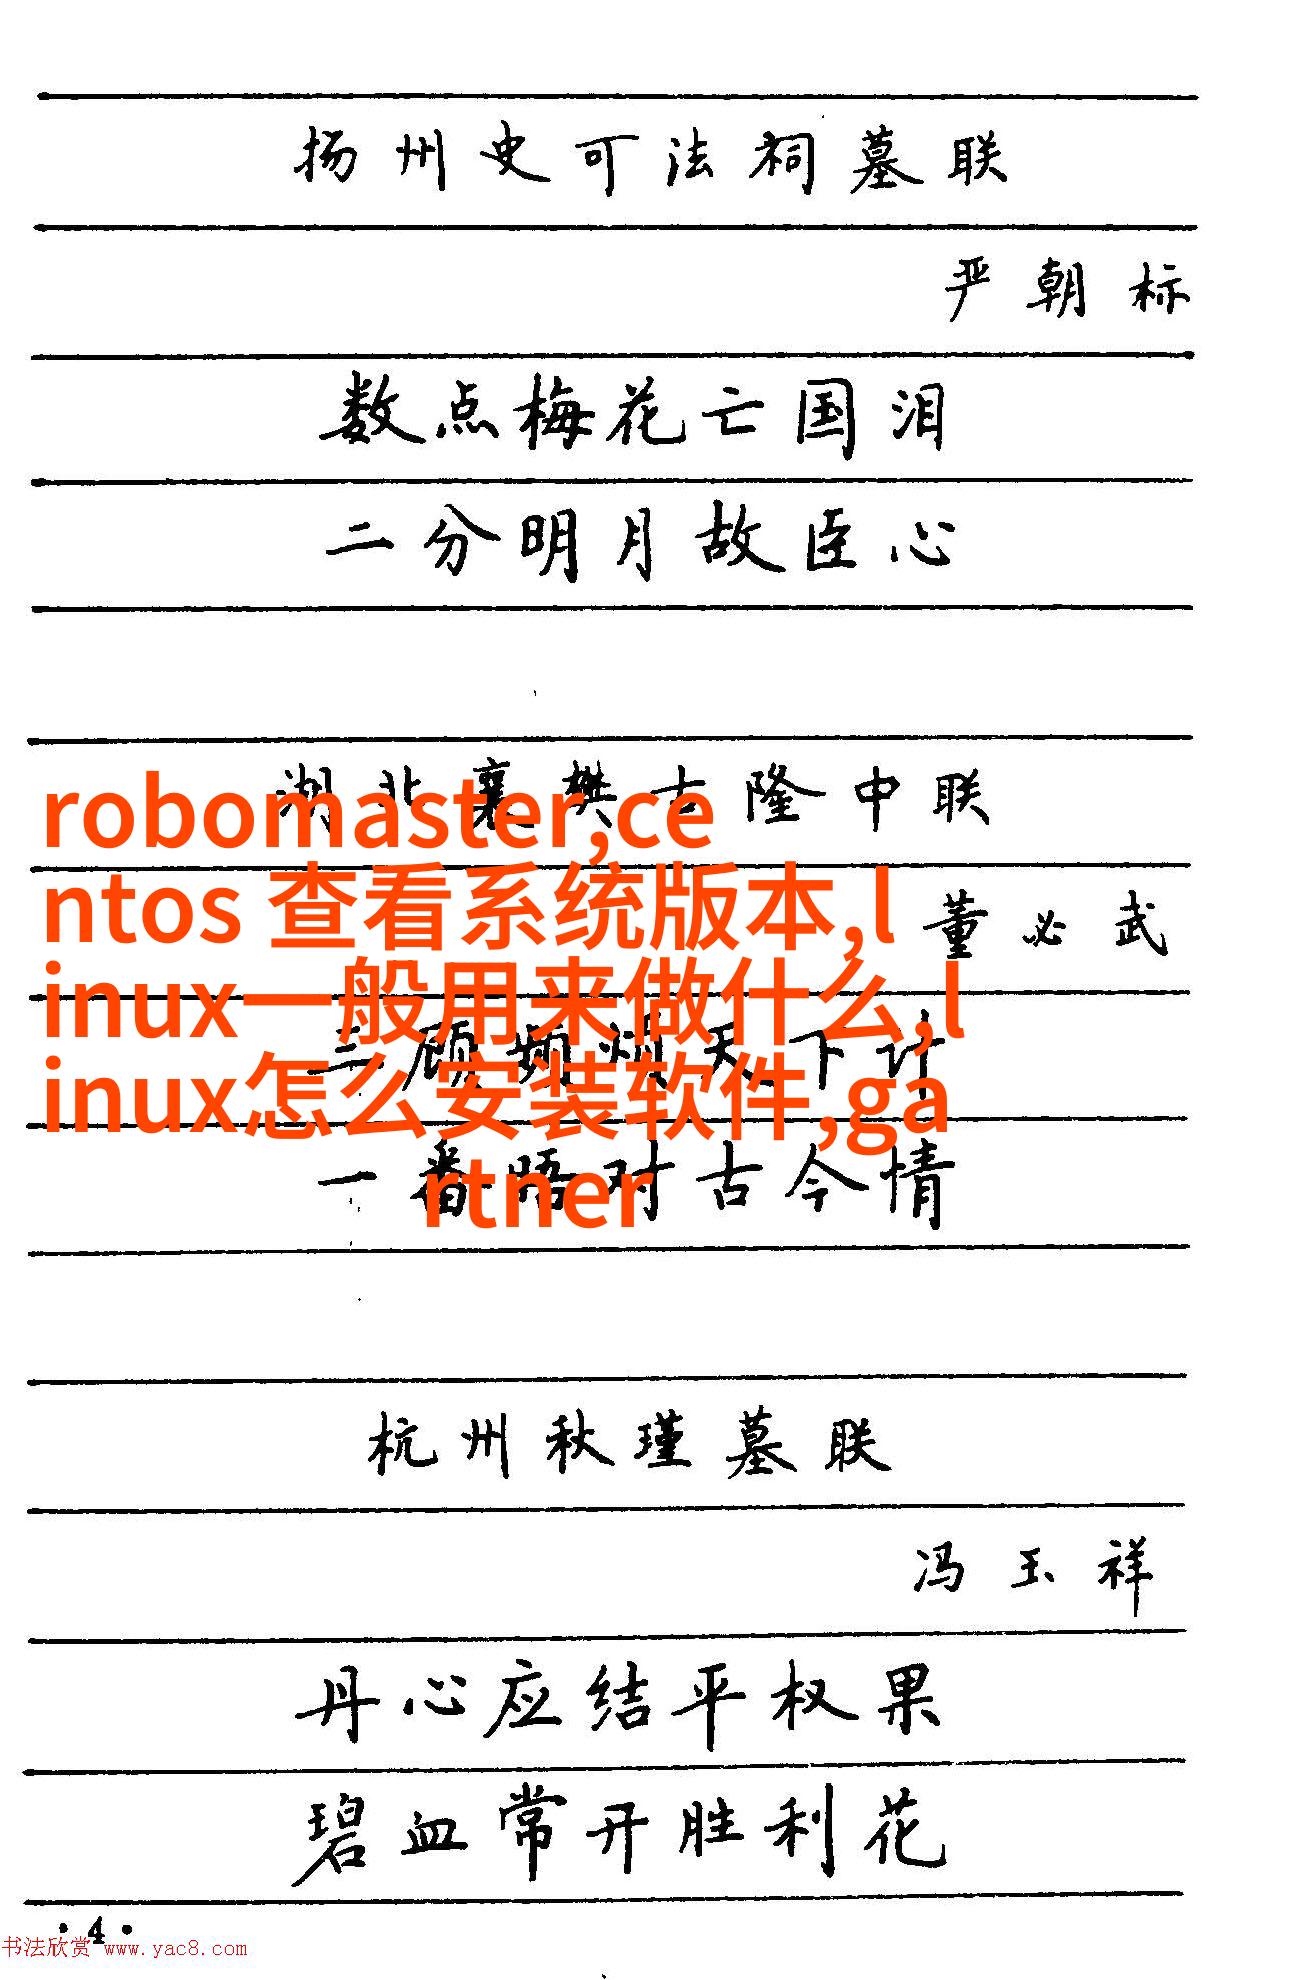 扬州史可法祠墓联
严朝标
数点梅花亡国泪
二分明月故臣心
湖北襄樊古隆中联
robomaster,ce
ntos 查看系统版本,l
董必武
inux一般用来做什么,l
三顾频烦天下计
inux怎么安装软件,ga
一番晤对古今情
rtner
杭州秋瑾墓联
冯玉祥
丹心应结平权果
碧血常开胜利花
·4·
书法欣赏 www.yac8.com